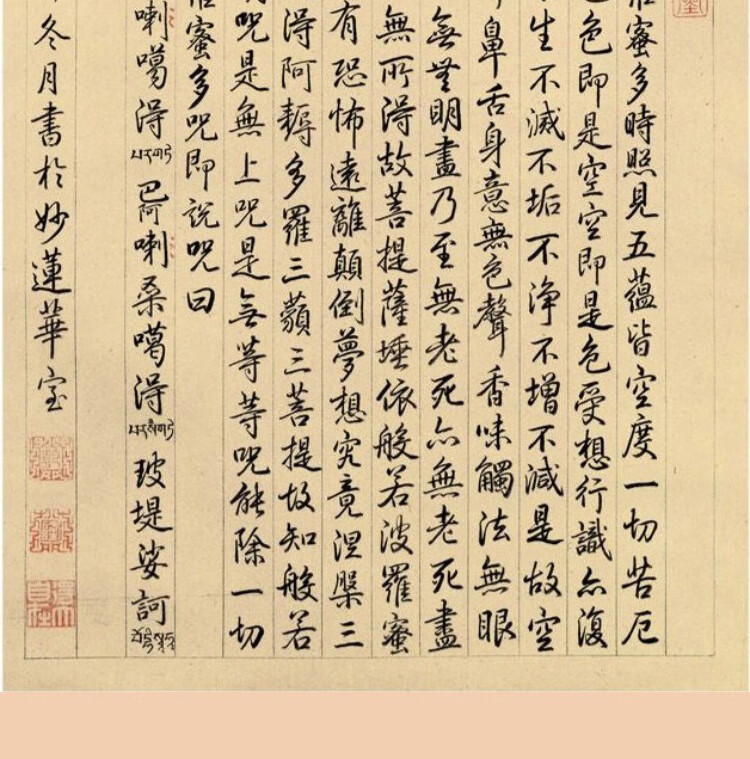 蜜多時照見五蘊皆空度一切苦厄
色即是空空即是色受想行識亦復
生不滅不垢不净不增不減是故空
鼻舌身意無色聲香味觸法無眼
無無明盡乃至無老死亦無老死盡
無所得故菩提薩埵依般若波羅蜜
有恐怖遠離顛倒夢想究竟涅槃三
得阿耨多羅三藐三菩提故知般若
咒是無上咒是無等等咒能除一切
蜜多咒即說咒曰
喇噶得巴阿喇桑噶得玻堤娑訶
冬月書於妙蓮華室